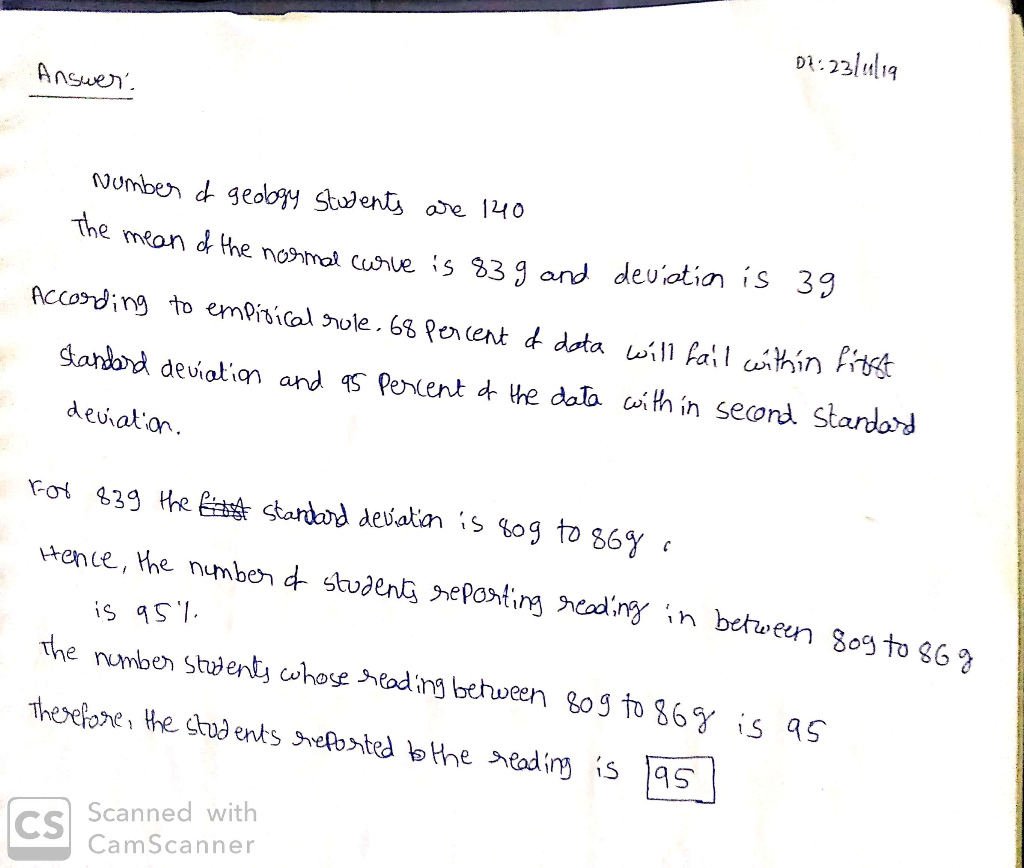 Answer:
Dt: 23/11/19
Number of geology students are 140
The mean of the normal curve is 83 g and deviation is 3g
According to empirical rule. 68 Percent of data will fall within first
standard deviation and 95 Percent of the data with in second standard
deviation.
For 83g the first standard deviation is 80g to 86g.
Hence, the number of students reporting reading in between 80g to 86g
is 95%.
The number students whose reading between 80g to 86g is 95
Therefore, the students reported to the reading is 95
CS Scanned with
CamScanner